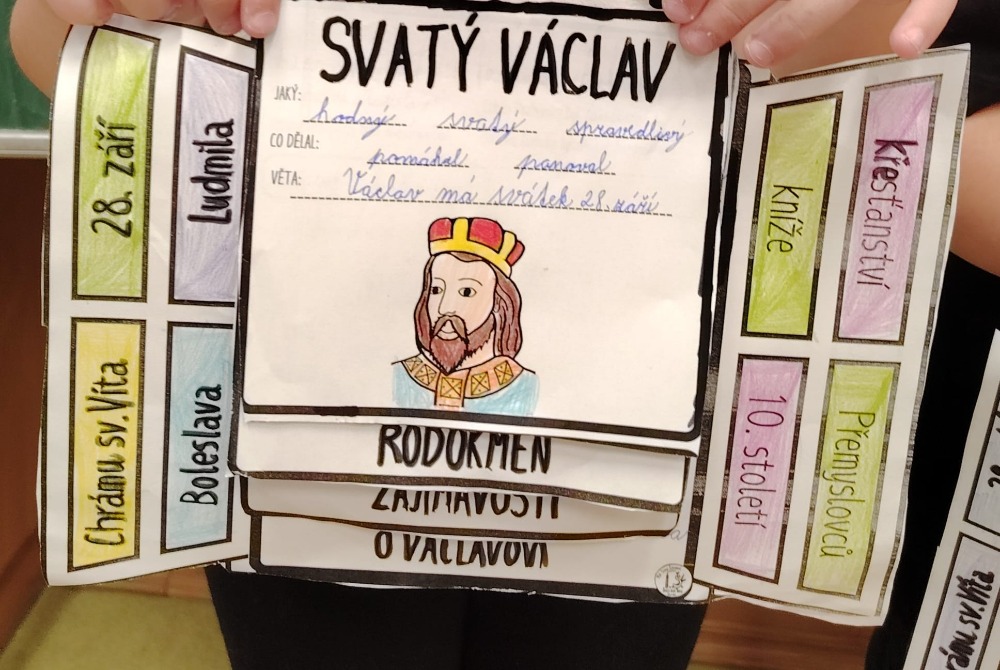 SVATÝ VÁCLAV
JAKÝ: hodný svatý spravedlivý
CO DĚLAL: pomáhal panoval
VĚTA: Václav má svátek 28. září
RODOKMEN
ZAJÍMAVOSTI
O VÁCLAVOVI
28. září
Ludmila
Chrámu sv. Víta
Boleslava
kníže
křesťanství
10. století
Přemyslovců
sv. Víta